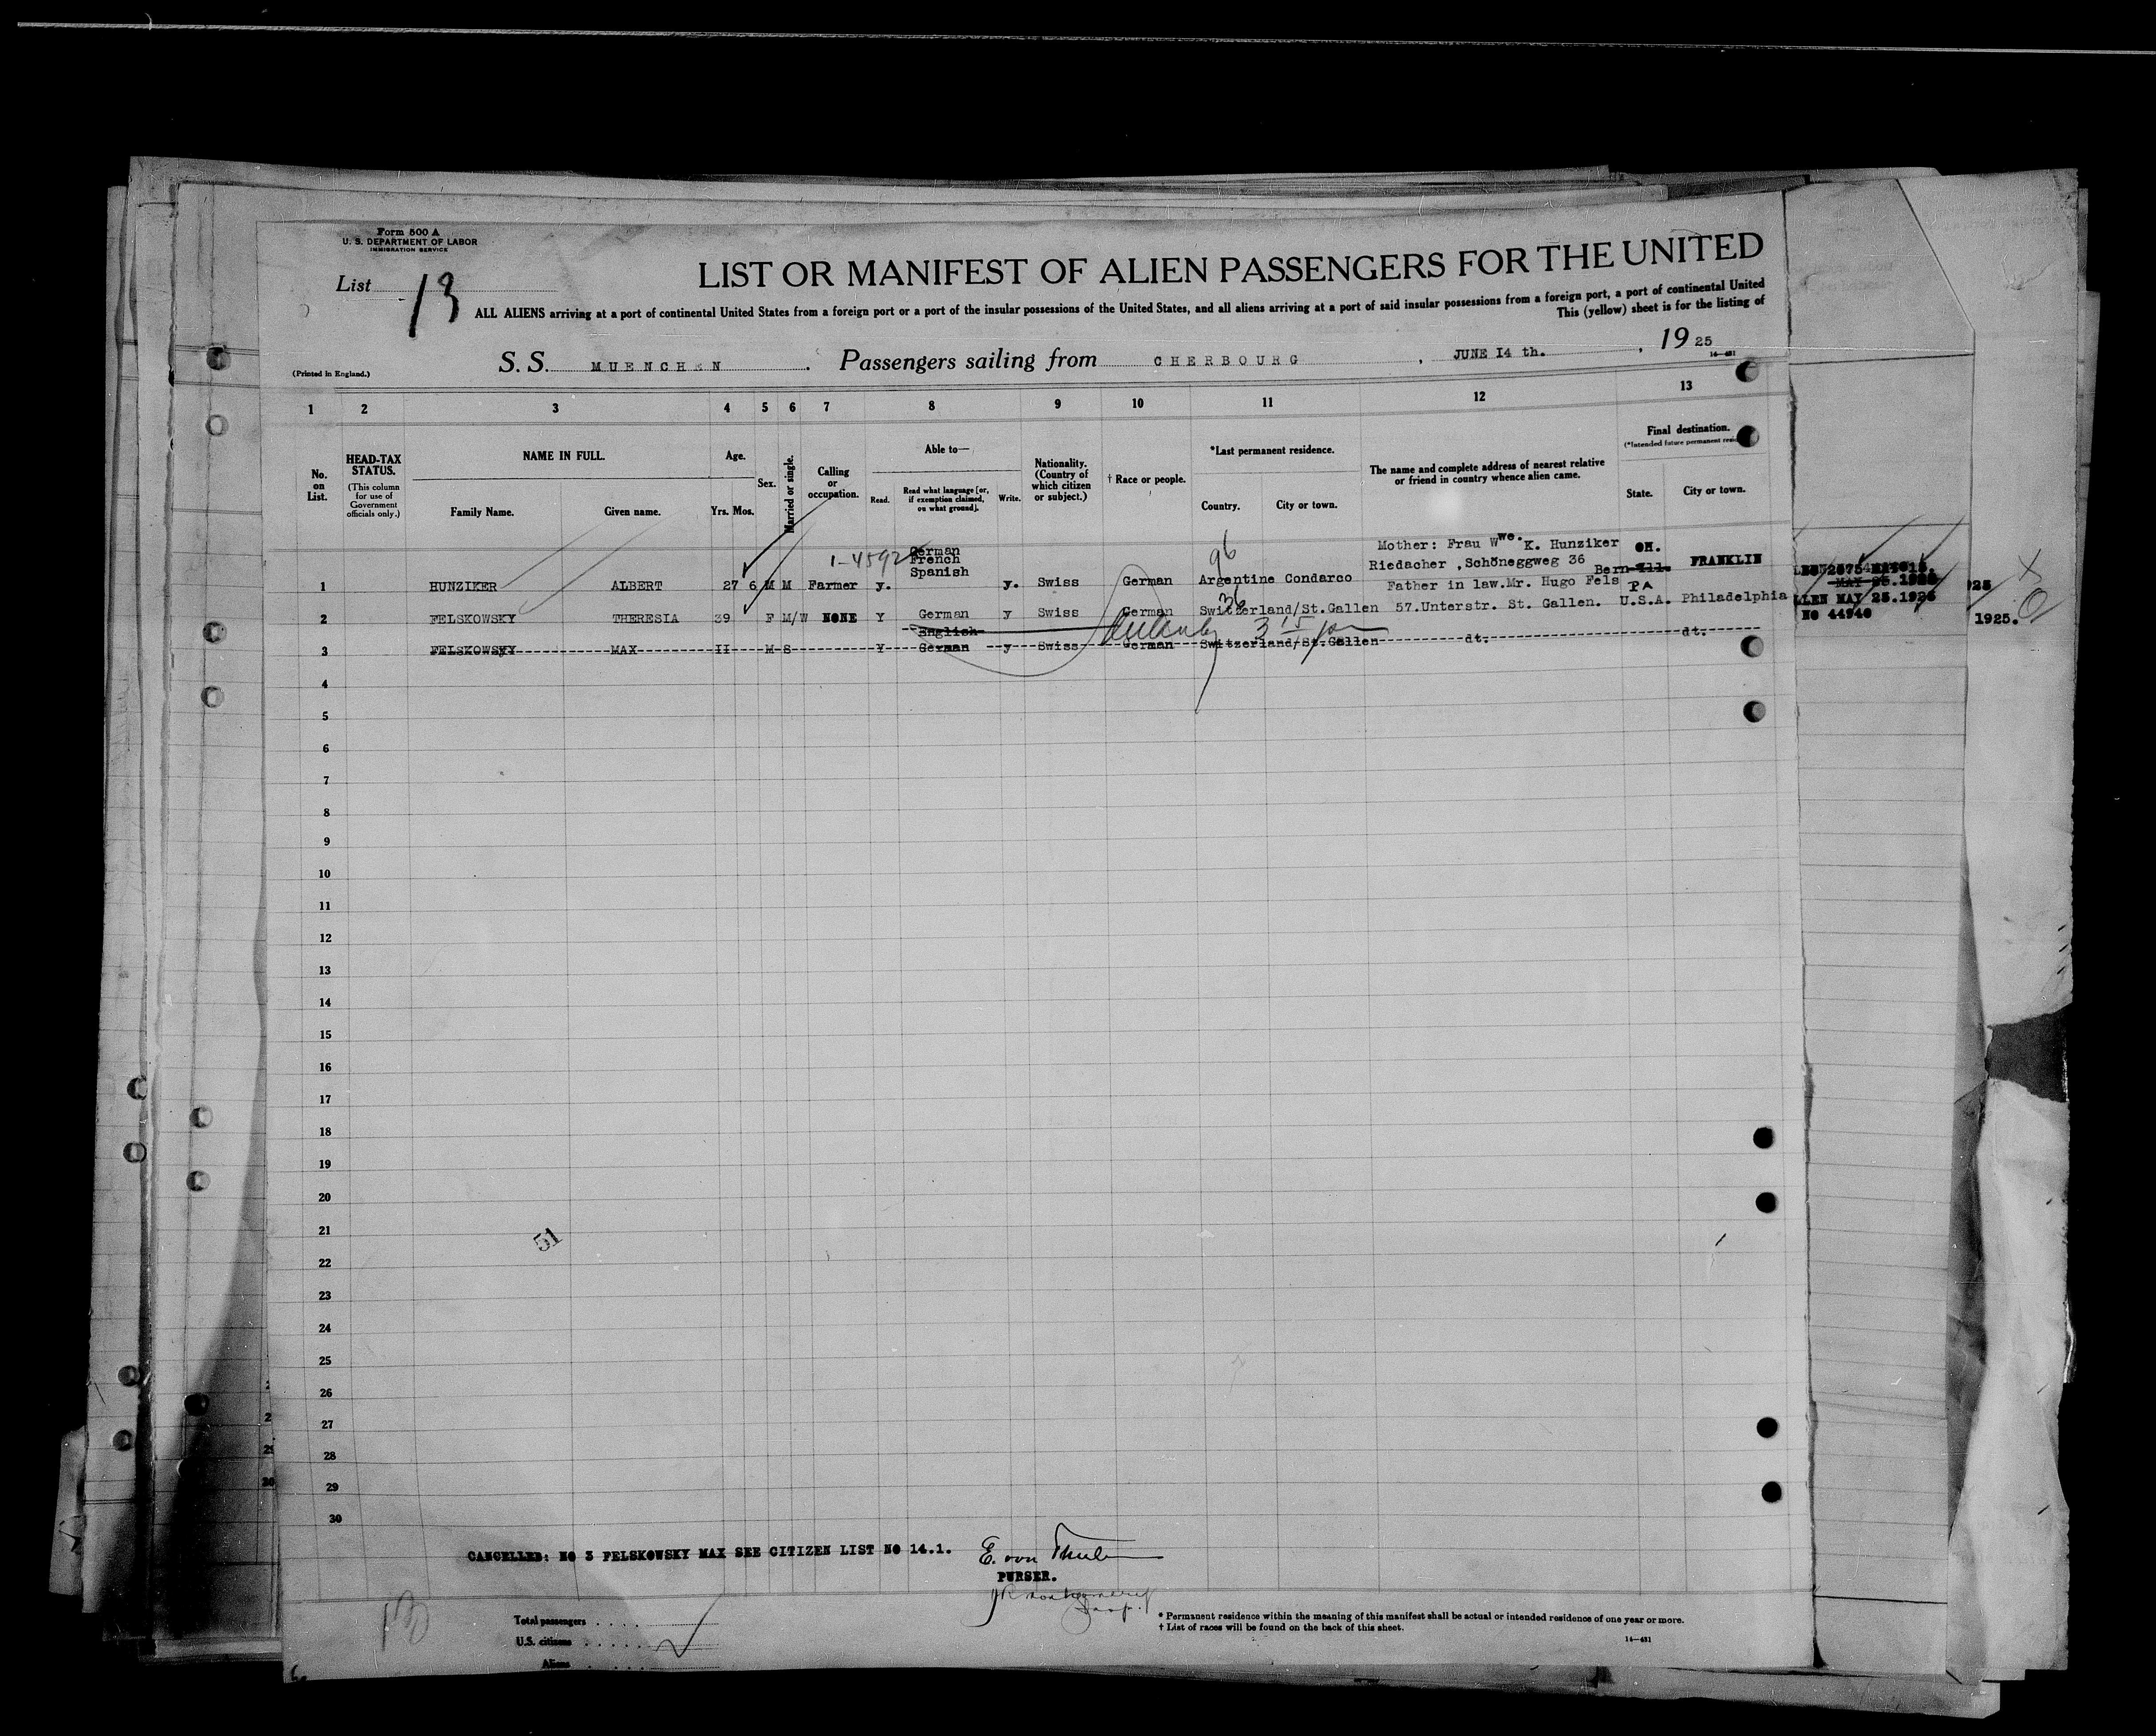 Form 500 A
U. S. DEPARTMENT OF LABOR
IMMIGRATION SERVICE
List 13
LIST OR MANIFEST OF ALIEN PASSENGERS FOR THE UNITED
ALL ALIENS arriving at a port of continental United States from a foreign port or a port of the insular possessions of the United States, and all aliens arriving at a port of said insular possessions from a foreign port, a port of continental United
This (yellow) sheet is for the listing of
(Printed in England.)
S. S. MUENCHEN . Passengers sailing from CHERBOURG , JUNE I4 th. , 19 25
14—431
1 2 3 4 5 6 7 8 9 10 11 12 13
No. on List.
HEAD-TAX STATUS.
(This column for use of Government officials only.)
NAME IN FULL.
Family Name. Given name.
Age.
Yrs. Mos.
Sex.
Married or single.
Calling or occupation.
Able to—
Read. Read what language [or, if exemption claimed, on what ground]. Write.
Nationality. (Country of which citizen or subject.)
† Race or people.
*Last permanent residence.
Country. City or town.
The name and complete address of nearest relative or friend in country whence alien came.
Final destination.
(*Intended future permanent
State. City or town.
1-4592 German 96 Mother: Frau Wwe. K. Hunziker OH.
French Riedacher ,Schöneggweg 36 FRANKLIN
Spanish Bern Ill.
1 HUNZIKER ALBERT 27 6 M M Farmer y. y. Swiss German Argentine Condarco Father in law.Mr. Hugo Fels PA
36
2 FELSKOWSKY THERESIA 39 F M/W NONE Y German y Swiss German Switzerland/St.Gallen 57.Unterstr. St. Gallen. U.S.A. Philadelphia
English 3 15 pm
3 FELSKOWSKY MAX II M S Y German y Swiss German Switzerland/St.Gallen dt. dt.
MAY 25.1925
NO 44940
1925.
4
5
6
7
8
9
10
11
12
13
14
15
16
17
18
19
20
21
51
22
23
24
25
26
27
28
29
30
CANCELLED: NO 3 FELSKOWSKY MAX SEE CITIZEN LIST NO 14.1.
E. von
PURSER.
13
Total passengers . . . .
U.S. citizens . . . . .
Aliens . . . .
* Permanent residence within the meaning of this manifest shall be actual or intended residence of one year or more.
† List of races will be found on the back of this sheet.
14—431